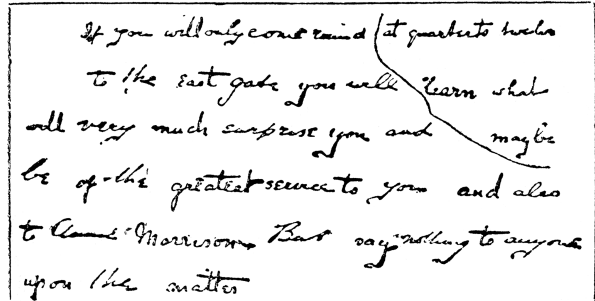 If you will only come round at quarter to twelve
to the east gate you will learn what
will very much surprise you and maybe
be of the greatest service to you and also
to Annie Morrison. But say nothing to anyone
upon the matter